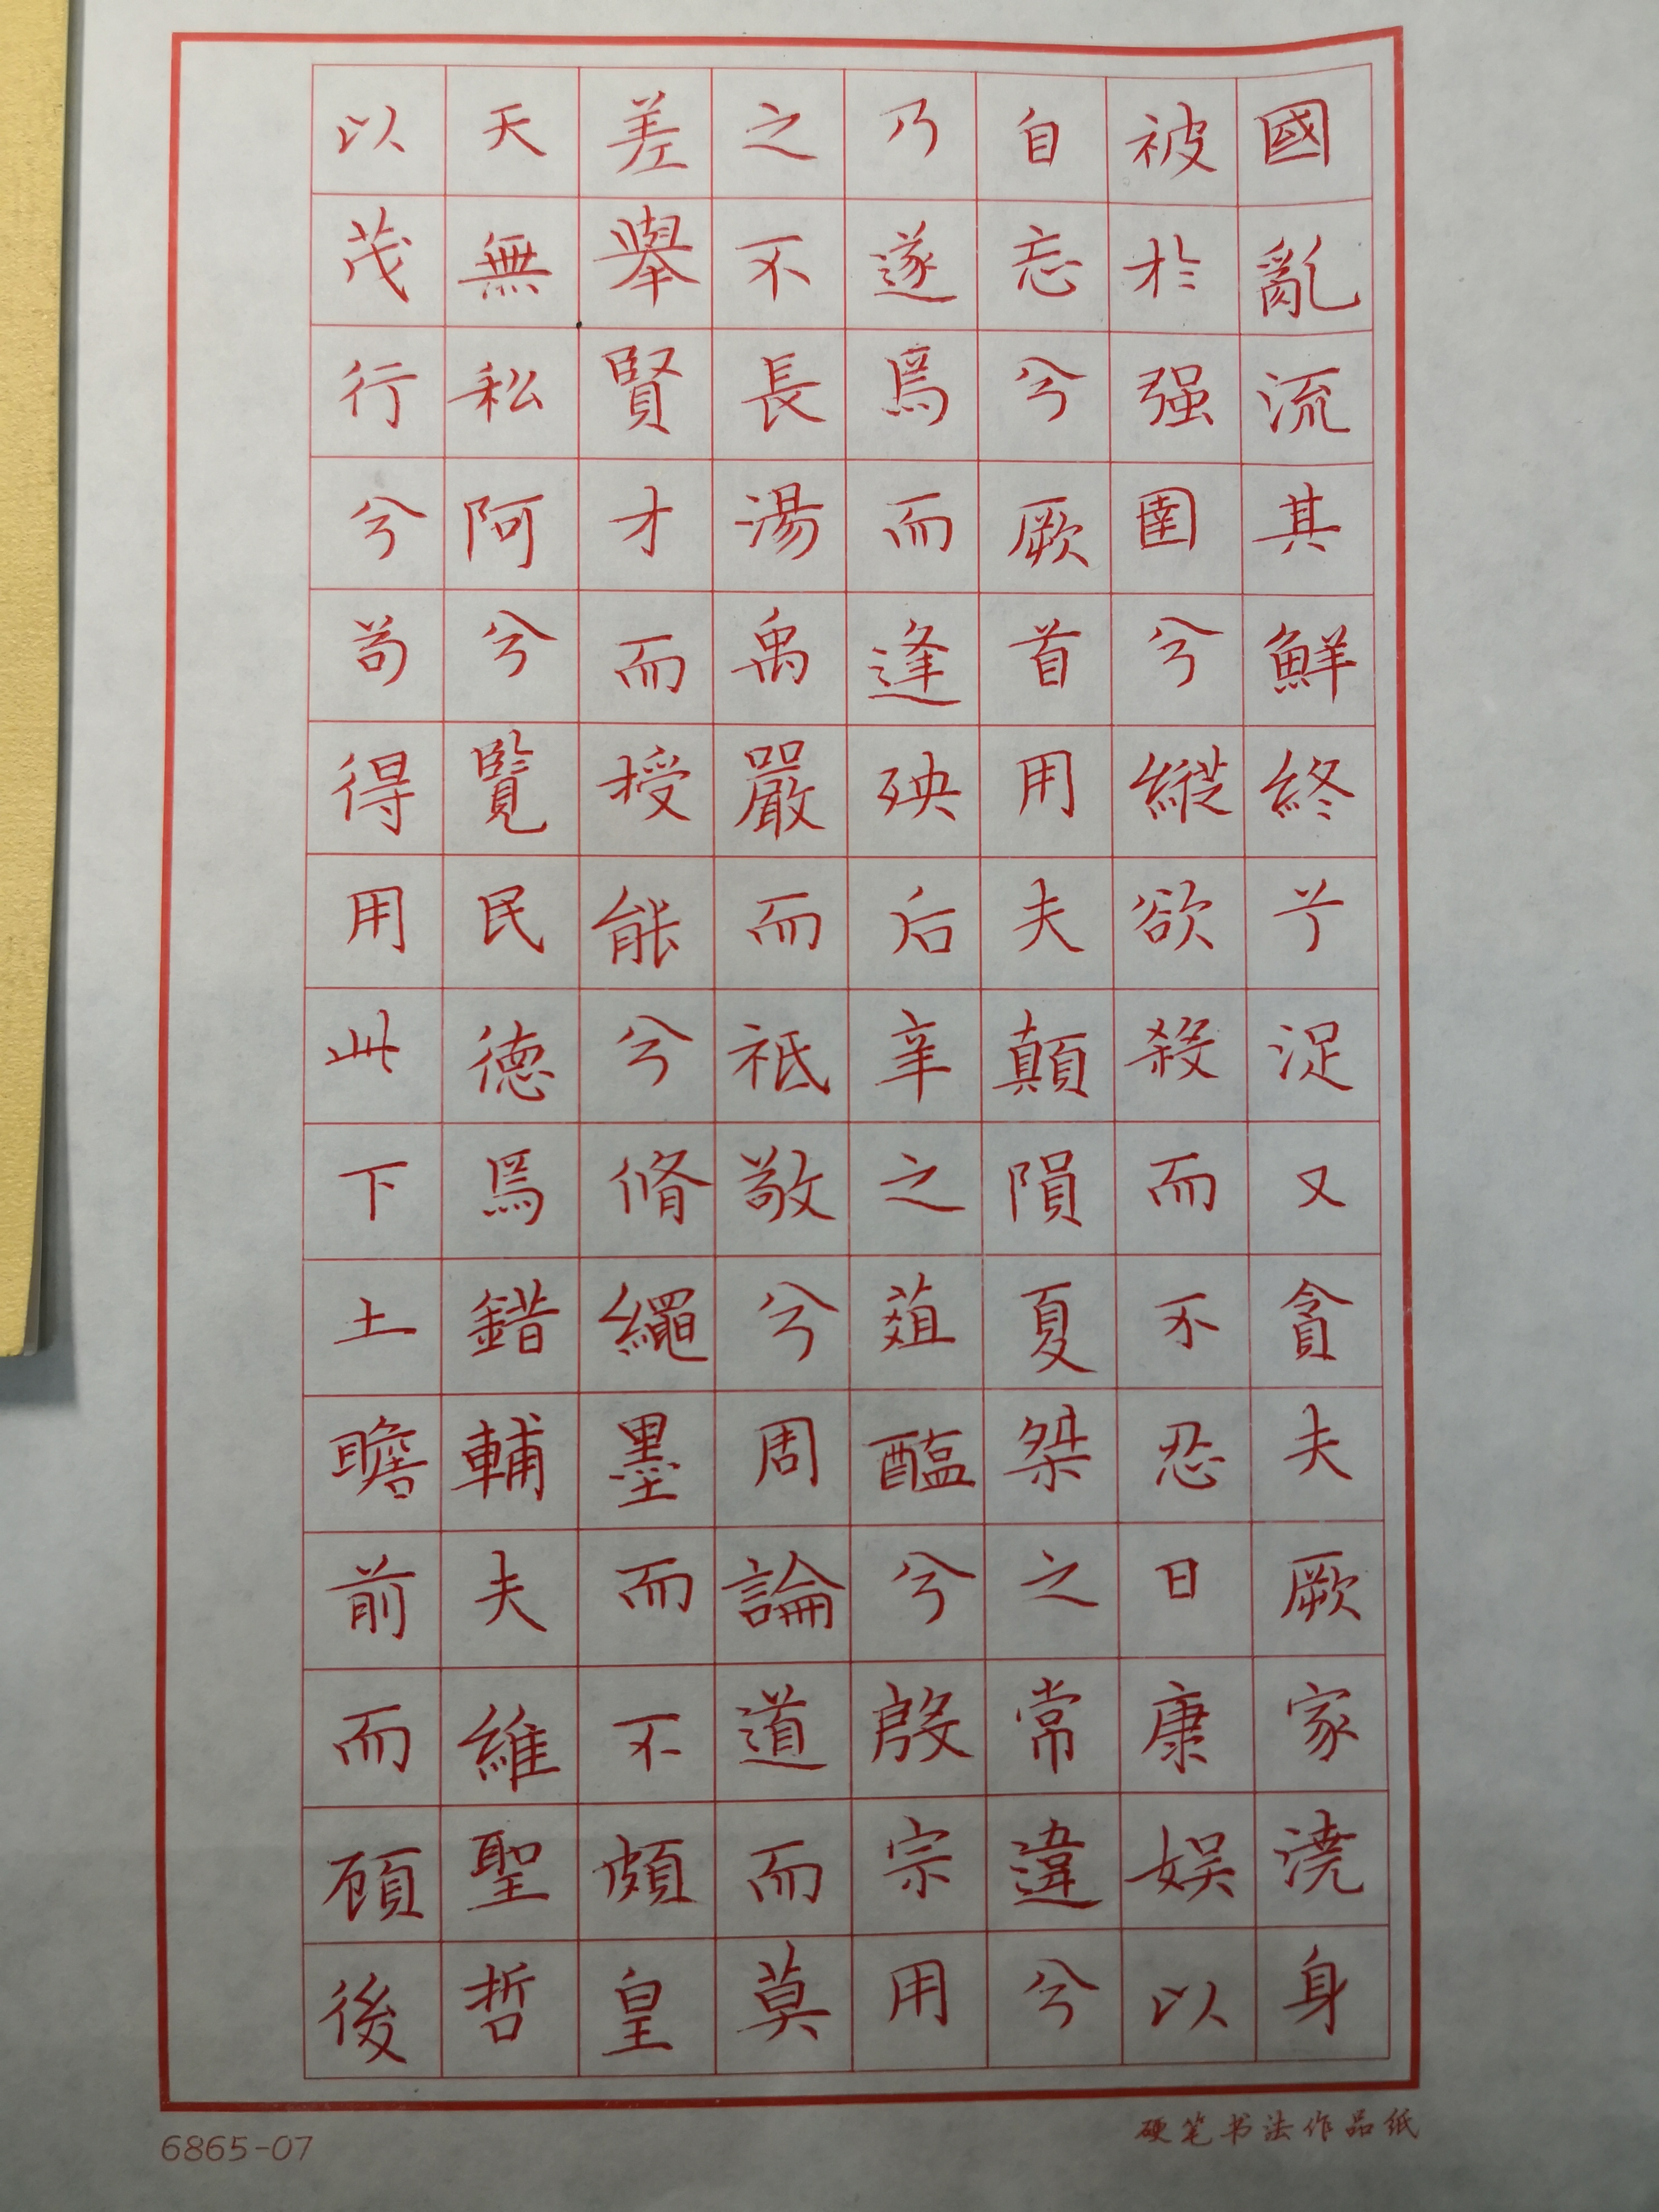 國亂流其鮮終兮浞又貪夫厥家澆身
被於强圉兮縱欲殺而不忍日康娱以
自忘兮厥首用夫顛隕夏桀之常違兮
乃遂焉而逢殃后辛之葅醢兮殷宗用
之不長湯禹嚴而祗敬兮周論道而莫
差舉賢才而授能兮脩繩墨而不頗皇
天無私阿兮覽民德焉錯輔夫維聖哲
以茂行兮苟得用此下土瞻前而顧後
6865-07
硬笔书法作品纸